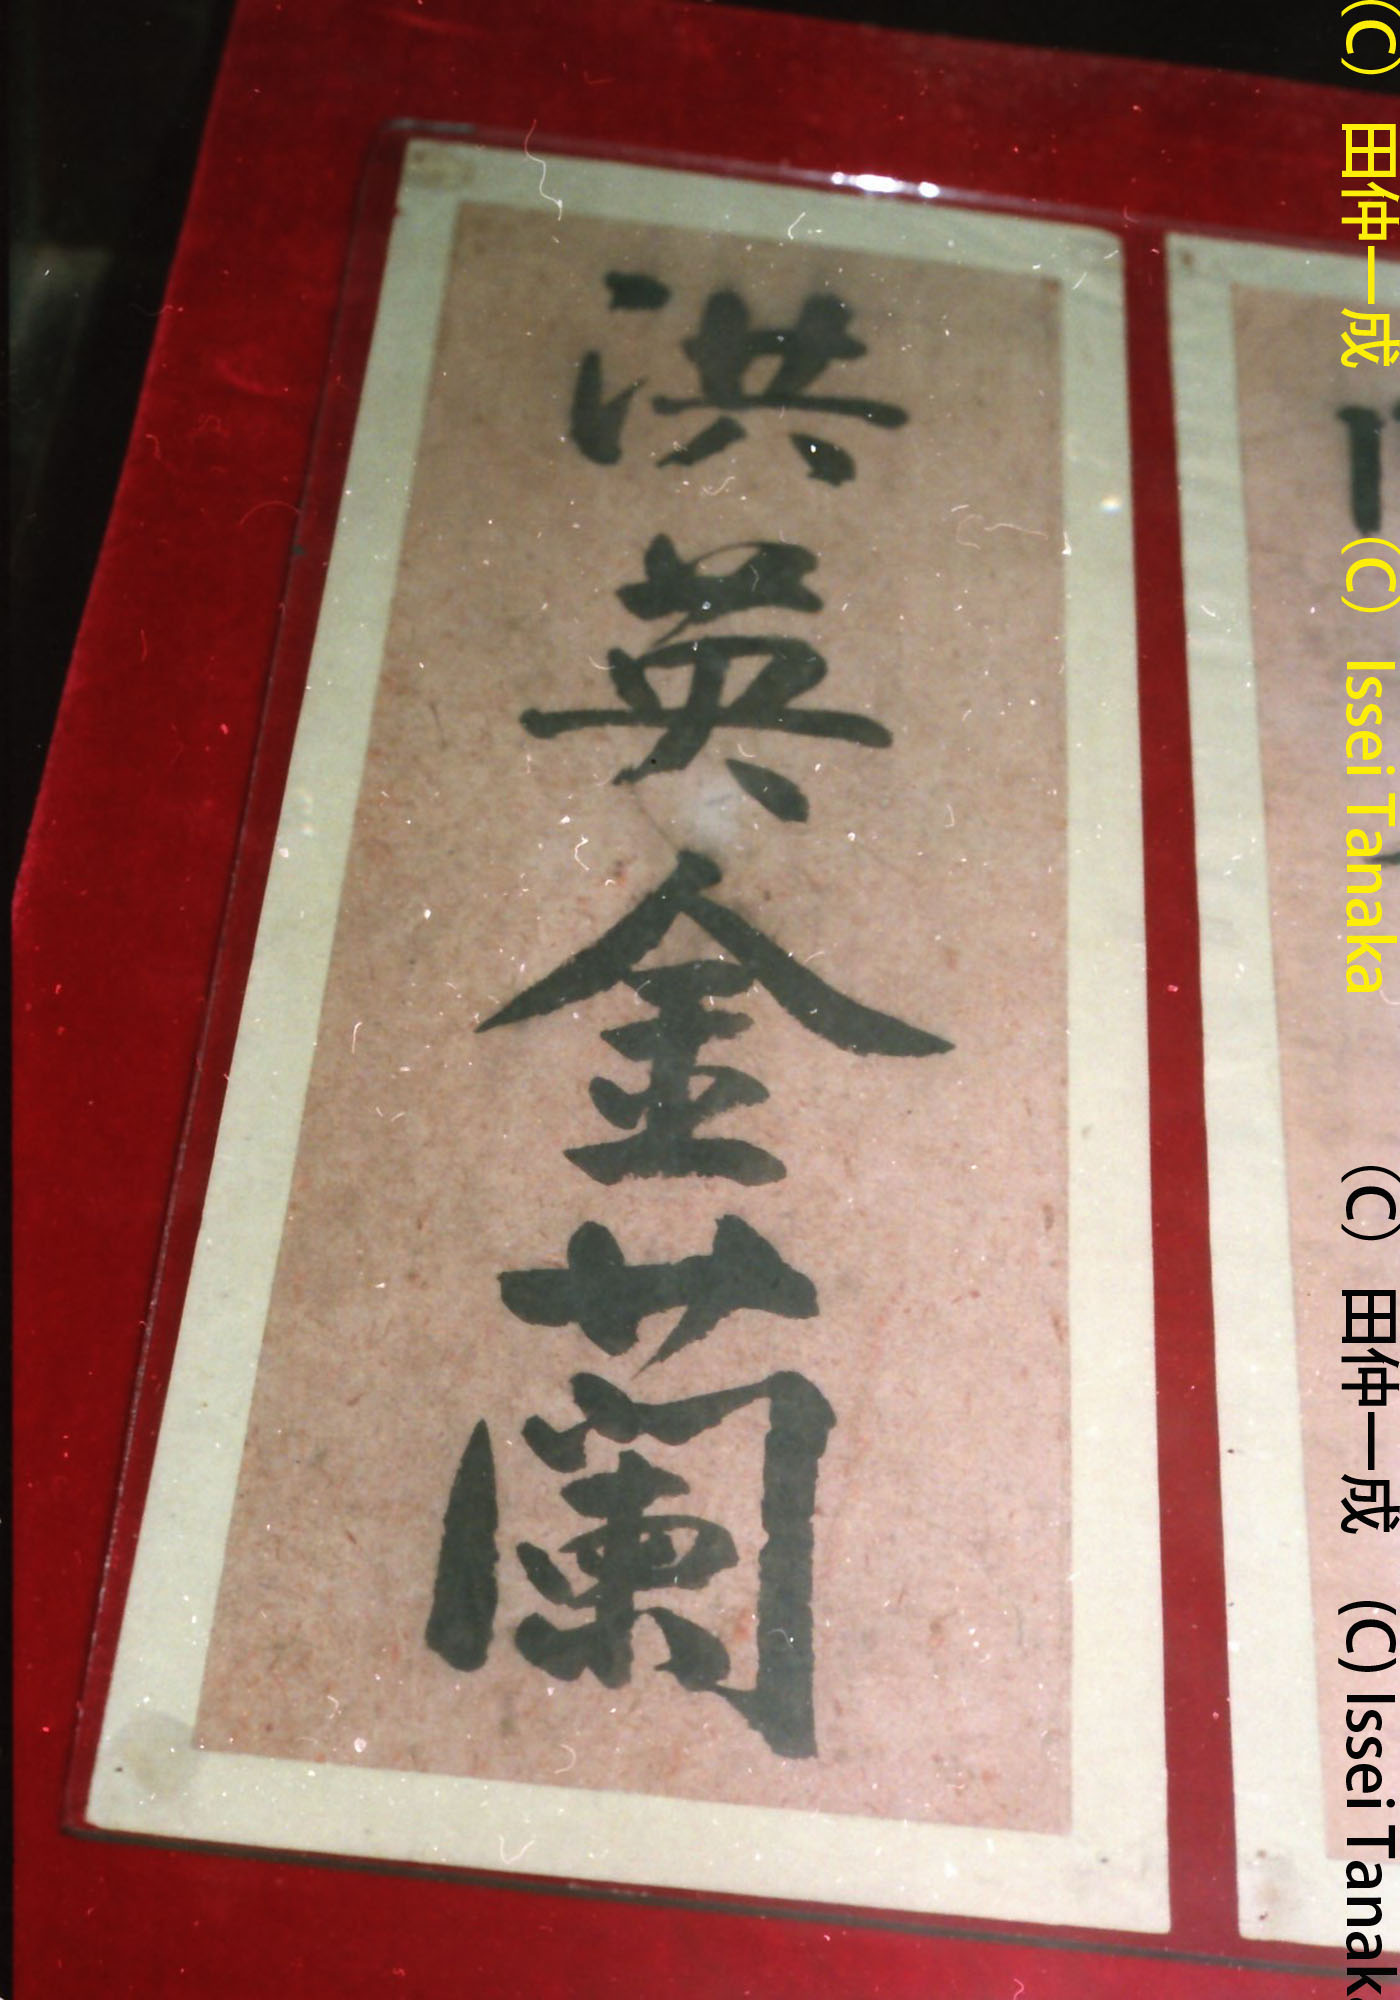 洪英金蘭
(C) 田仲一成 (C) Issei Tanaka
(C) 田仲一成 (C) Issei Tanak